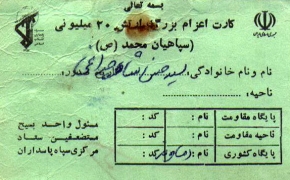 بسمه تعالی
کارت اعزام بزرگ ارتش ۲۰ میلیونی
(سپاهیان محمد (ص
نام و نام خانوادگی: سید حسن
ناحیه:
پایگاه مقاومت نام: کد:
ناحیه مقاومت نام: کد:
پایگاه کشوری نام: کد:
مسئول واحد بسیج
مستضعفین ستاد
مرکزی سپاه پاسداران